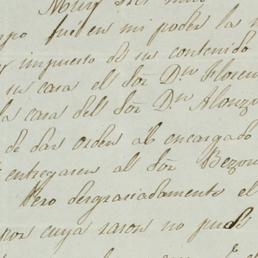 Muy Sor mio
po fué en mi poder la
y impuesto de su contenido
su casa el Sor Dn Floren
la casa del Sor Dn Alonzo
de dar orden al encargado
entregasen al Sor Bezon
Pero desgraciadamente el
por cuya rason no pude